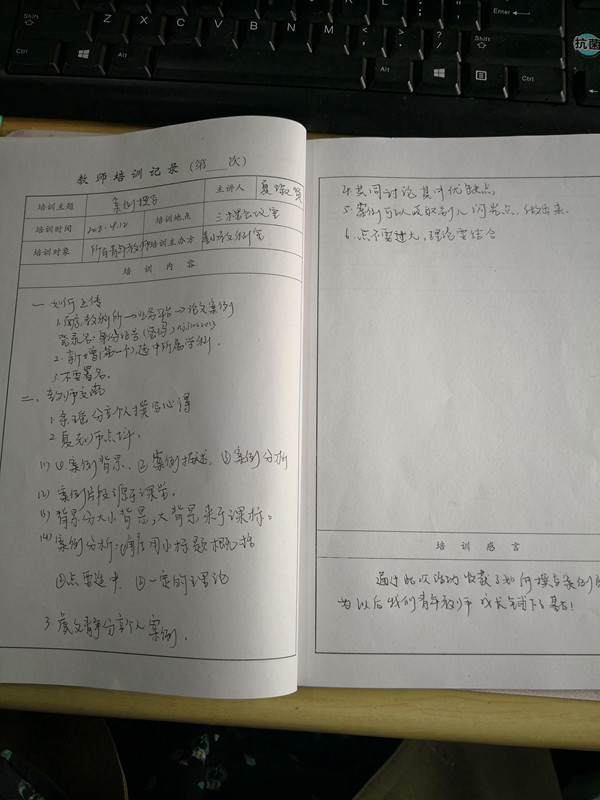 Shift
Enter
Ctrl
Alt
Shift
Alt
Ctrl
抗菌
Z X C V B N M
教师培训记录（第 次）
培训主题 案例撰写 主讲人
培训时间 2018.9.12 培训地点 三楼会议室
培训对象 所有青年教师 培训主办方
培训内容
一、如何上传
1. 教科所→业务平台→论文案例
登录名：单位
2. 新增(第一个)选中所属学科.
3. 不要署名.
二、教师交流
1. 分享个人撰写心得
2. 夏老师点评.
(1) ①案例背景、②案例描述、③案例分析
(2) 案例片段源于课堂。
(3) 背景分大小背景,大背景来于课标。
(4) 案例分析:①角度用小标题概括
②点要集中 ③一定的理论
3. 分享个人案例.
4. 共同讨论其中优缺点.
5. 案例可以
6. 点不要过大,理论要结合
培训感言
通过此次活动收获了如何撰写案例的
为以后我们青年教师成长铺下了基石!